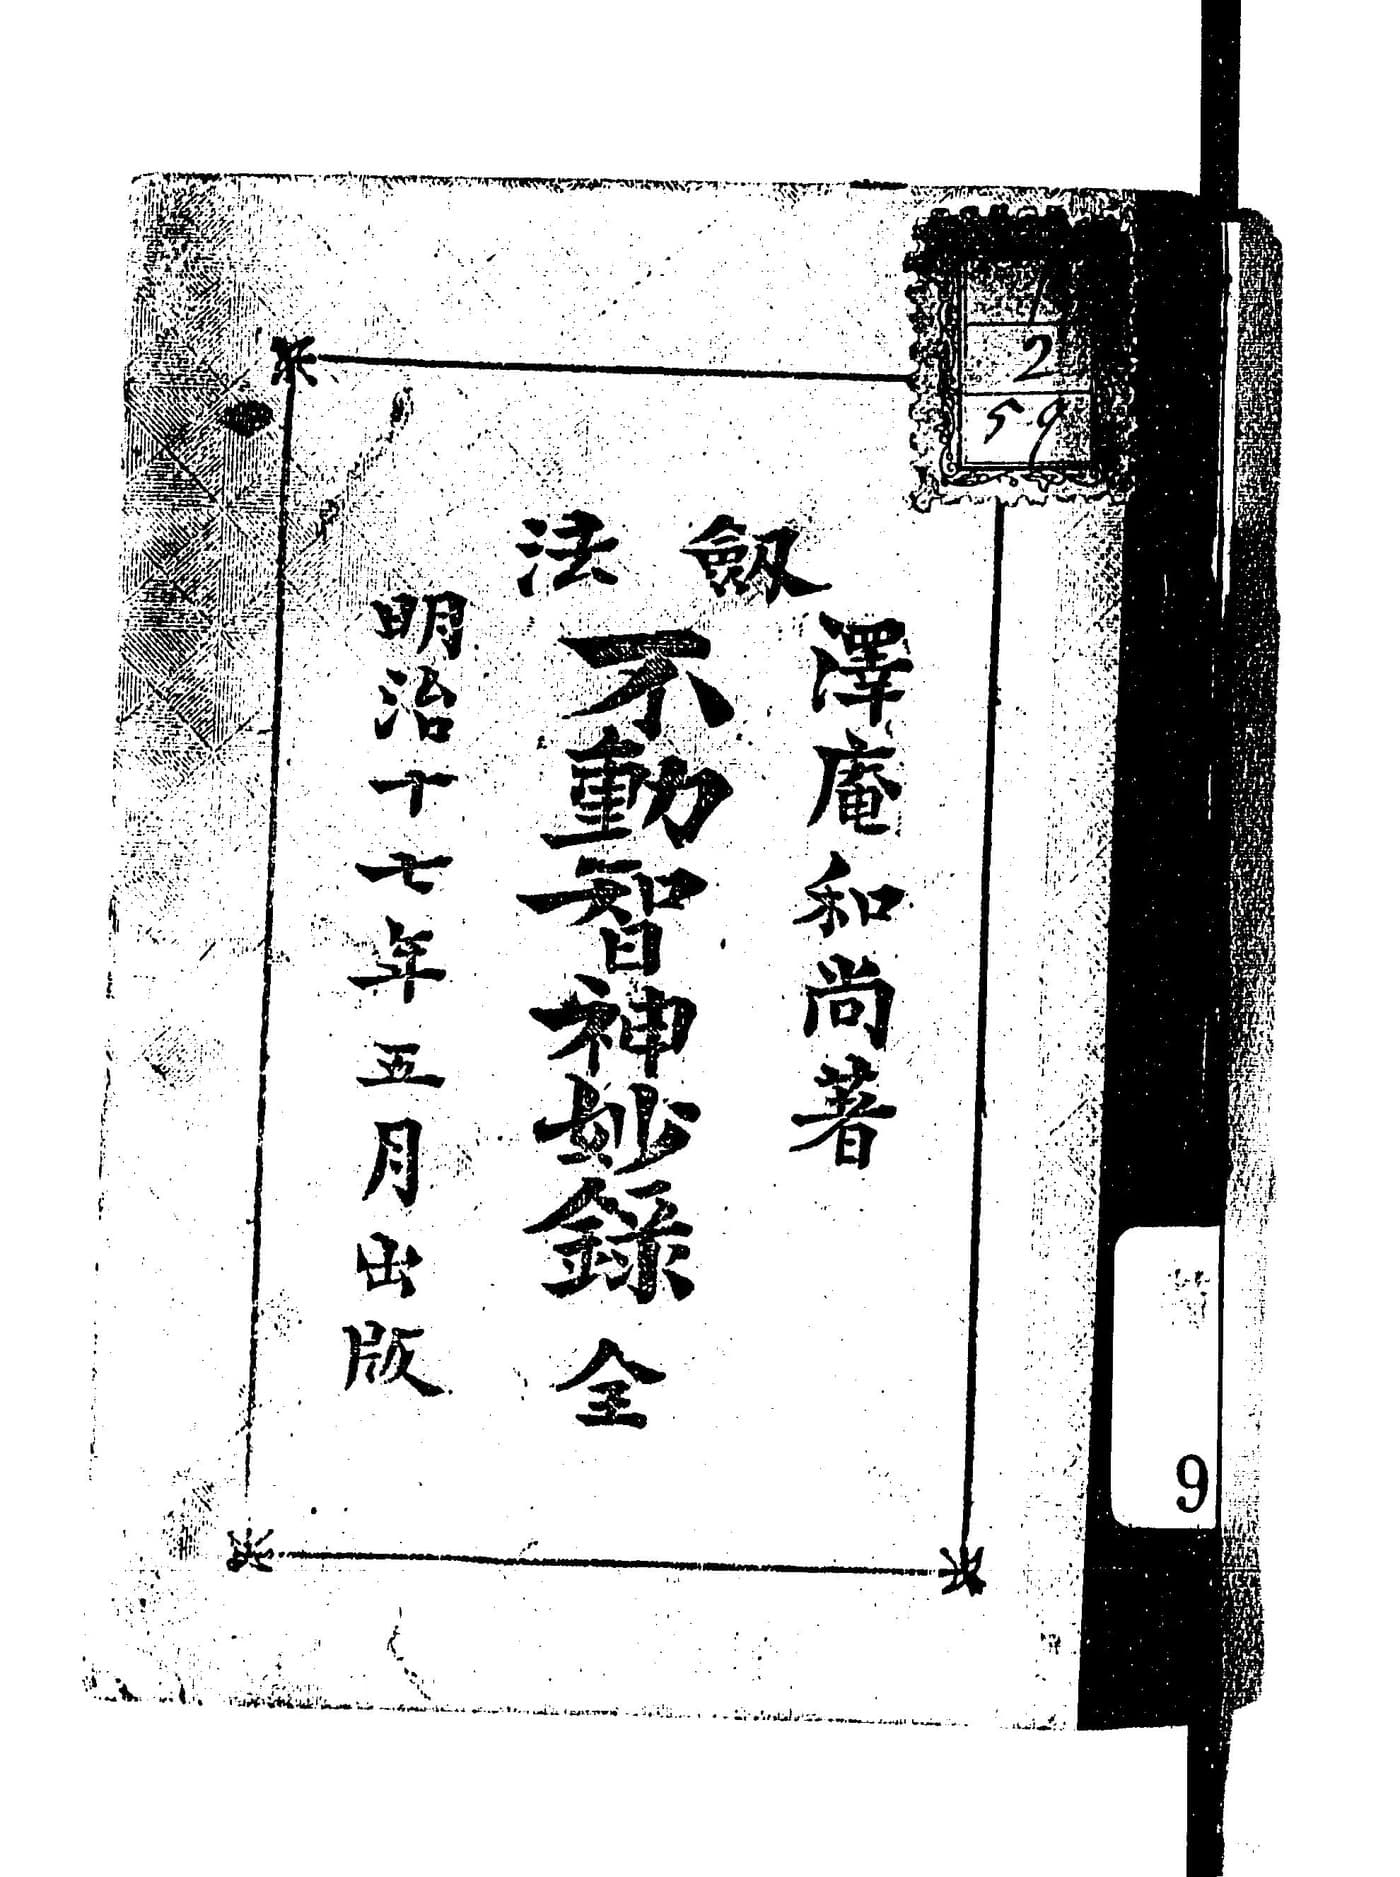 澤庵和尚著
劔法
不動智神妙録 全
明治十七年五月出版
2
59
9